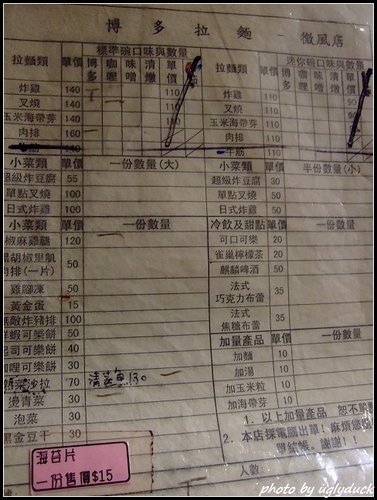 博多拉麵－微風店
標準碗口味與數量 迷你碗口味與數量
拉麵類 單價 博多 咖哩 味噌 清燉 單價 拉麵類 單價 博多 咖哩 味噌 清燉 單價
炸雞 140 110 炸雞 110
叉燒 140 110 叉燒 90
玉米海帶芽 140 110 玉米海帶芽 110 90
肉排 160 肉排 110
牛筋
小菜類 單價 一份數量(大) 小菜類 單價 半份數量(小)
超級炸豆腐 55 超級炸豆腐 30
單點叉燒 100 單點叉燒 50
日式炸雞 100 日式炸雞 50
小菜類 單價 一份數量 冷飲及甜點 單價 一份數量
椒麻雞腿 120 可口可樂 20
黑胡椒里肌肉排(一片) 50 雀巢檸檬茶 20
麒麟啤酒 50
雞腳凍 50 法式巧克力布蕾 35
黃金蛋 15
無敵炸豬排 100 法式焦糖布蕾 35
鮮蝦可樂餅 50
起司可樂餅 40 加量產品 單價 一份數量
咖哩可樂餅 30 加麵 10
沙拉 70 清蒸魚130 加湯 10
燙青菜 30 加玉米粒 10
泡菜 30 加海帶芽 10
黑金豆干 30 1. 以上加量產品 恕不單
2. 本店採電腦出單！麻煩您
單結帳、謝謝！！
海苔片
一份售價$15
人數
photo by uglyduck